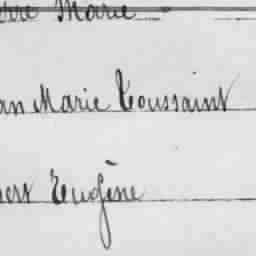 erre Marie
an Marie Toussaint
bert Eugène